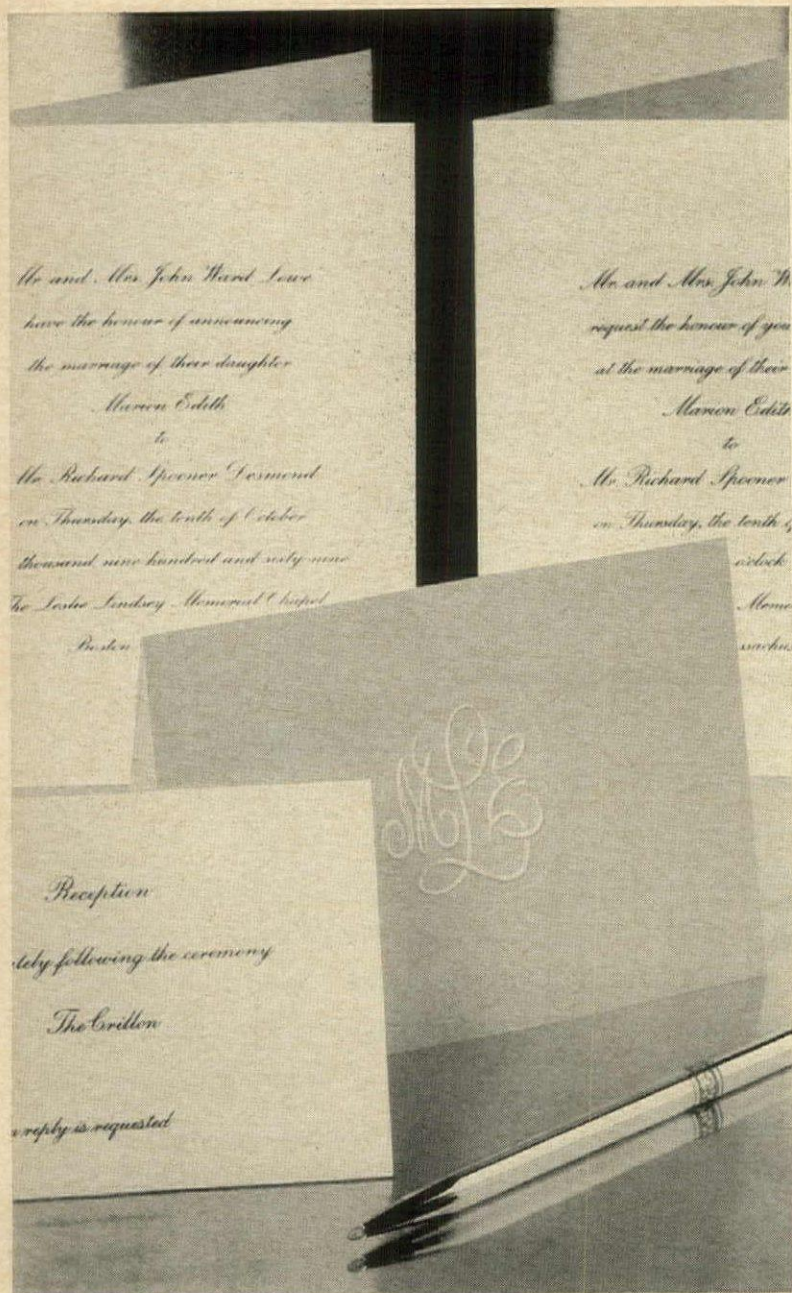 Mr and Mrs John Ward Lowe
have the honour of announcing
the marriage of their daughter
Marion Edith
to
Mr Richard Spooner Desmond
on Thursday, the tenth of October
thousand nine hundred and sixty-nine
The Leslie Lindsey Memorial Chapel
Boston
Mr. and Mrs. John
request the honour of
at the marriage of their
Marion Edith
to
Mr. Richard Spooner
on Thursday, the tenth
o'clock
MLE
Reception
following the ceremony
The Crillon
reply is requested